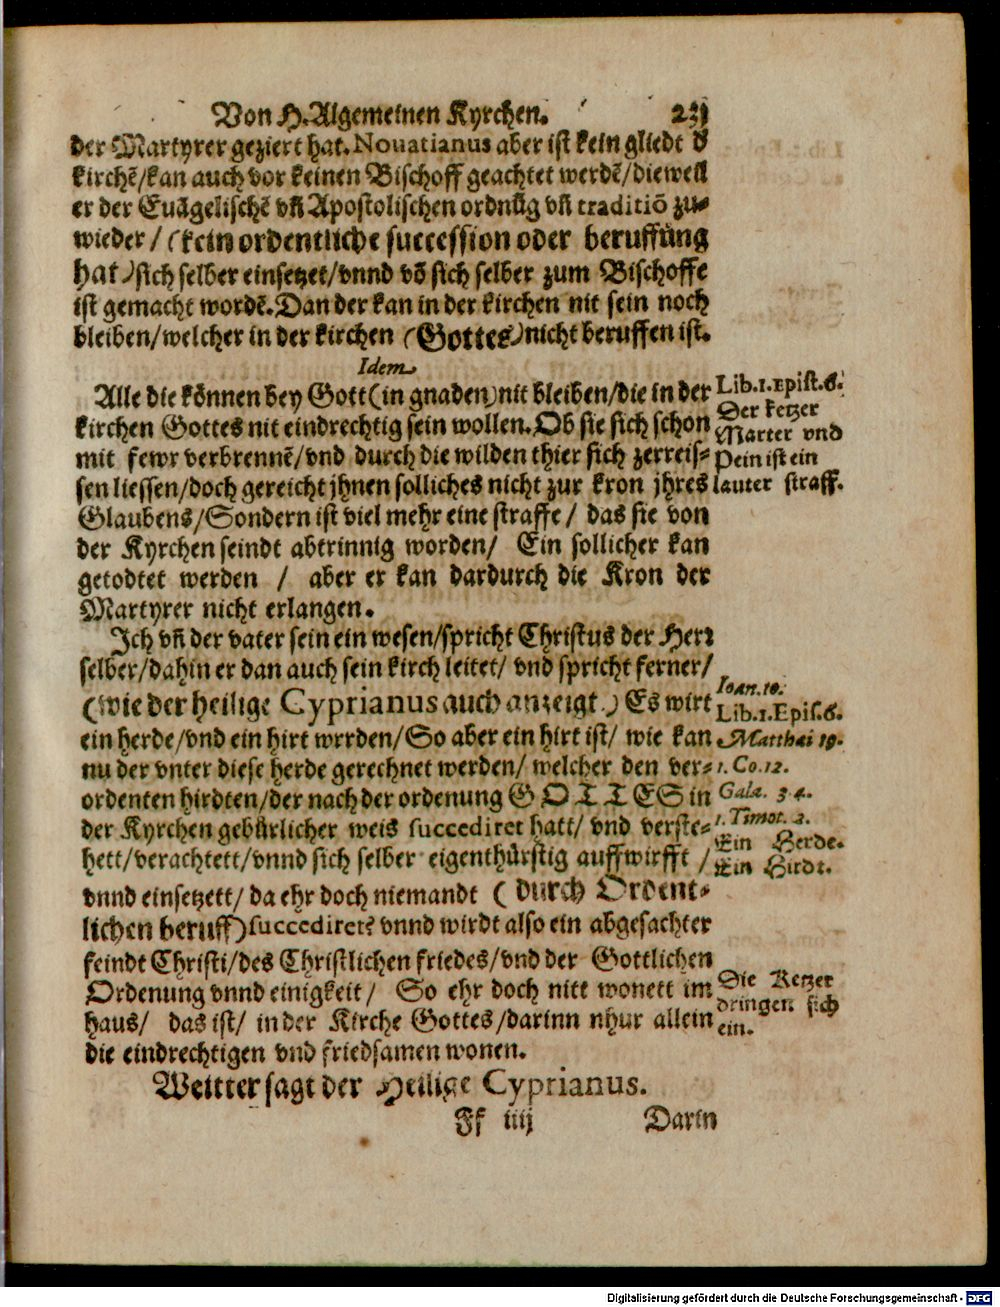 Von H. Algemeinen Kyrchen. 231
der Martyrer geziert hat. Nouatianus aber ist kein gliedt d̕
kirchē/kan auch vor keinen Bischoff geachtet werdē/dieweil
er der Euāgelischē vñ Apostolischen ordnūg vñ traditiō zu-
wieder/(kein ordentliche succession oder beruffung
hat) sich selber einsetzet/vnnd vō sich selber zum Bischoffe
ist gemacht wordē. Dan der kan in der kirchen nit sein noch
bleiben/welcher in der kirchen (Gottes) nicht beruffen ist.
Idem
Alle die können bey Gott (in gnaden) nit bleiben/die in der
kirchen Gottes nit eindrechtig sein wollen. Ob sie sich schon
mit fewr verbrennē/vnd durch die wilden thier sich zerreis-
sen liessen/doch gereicht jhnen solliches nicht zur kron jhres
Glaubens/Sondern ist viel mehr eine straffe/ das sie von
der Kyrchen seindt abtrinnig worden/ Ein sollicher kan
getodtet werden / aber er kan dardurch die Kron der
Martyrer nicht erlangen.
Lib.1.Epist.6.
Der ketzer
Marter vnd
Pein ist ein
lauter straff.
Ich vñ der vater sein ein wesen/spricht Christus der Herr
selber/dahin er dan auch sein kirch leitet/ vnd spricht ferner/
(wie der heilige Cyprianus auch anzeigt) Es wirt
ein herde/vnd ein hirt wrrden/So aber ein hirt ist/ wie kan
nu der vnter diese herde gerechnet werden/ welcher den ver-
ordenten hirdten/der nach der ordenung GOTTES in
der Kyrchen gebürlicher weis succediret hatt/ vnd verste-
hett/verachtett/vnnd sich selber eigenthürstig auffwirfft /
vnnd einsetzett/ da ehr doch niemandt (durch Ordent-
lichen beruff) succediret? vnnd wirdt also ein abgesachter
feindt Christi/des Christlichen friedes/vnd der Gottlichen
Ordenung vnnd einigkeit/ So ehr doch nitt wonett im
haus/ das ist/ in der Kirche Gottes/darinn nhur allein
die eindrechtigen vnd friedsamen wonen.
Ioan.10.
Lib.1.Epis.6.
Matthai 19.
1. Co.12.
Gala. 3 4.
1. Timot. 2.
Ein Herde.
Ein Hirdt.
Die Ketzer
dringen sich
ein.
Weitter sagt der Heilige Cyprianus.
Ff iiij Darin
Digitalisierung gefördert durch die Deutsche Forschungsgemeinschaft - DFG